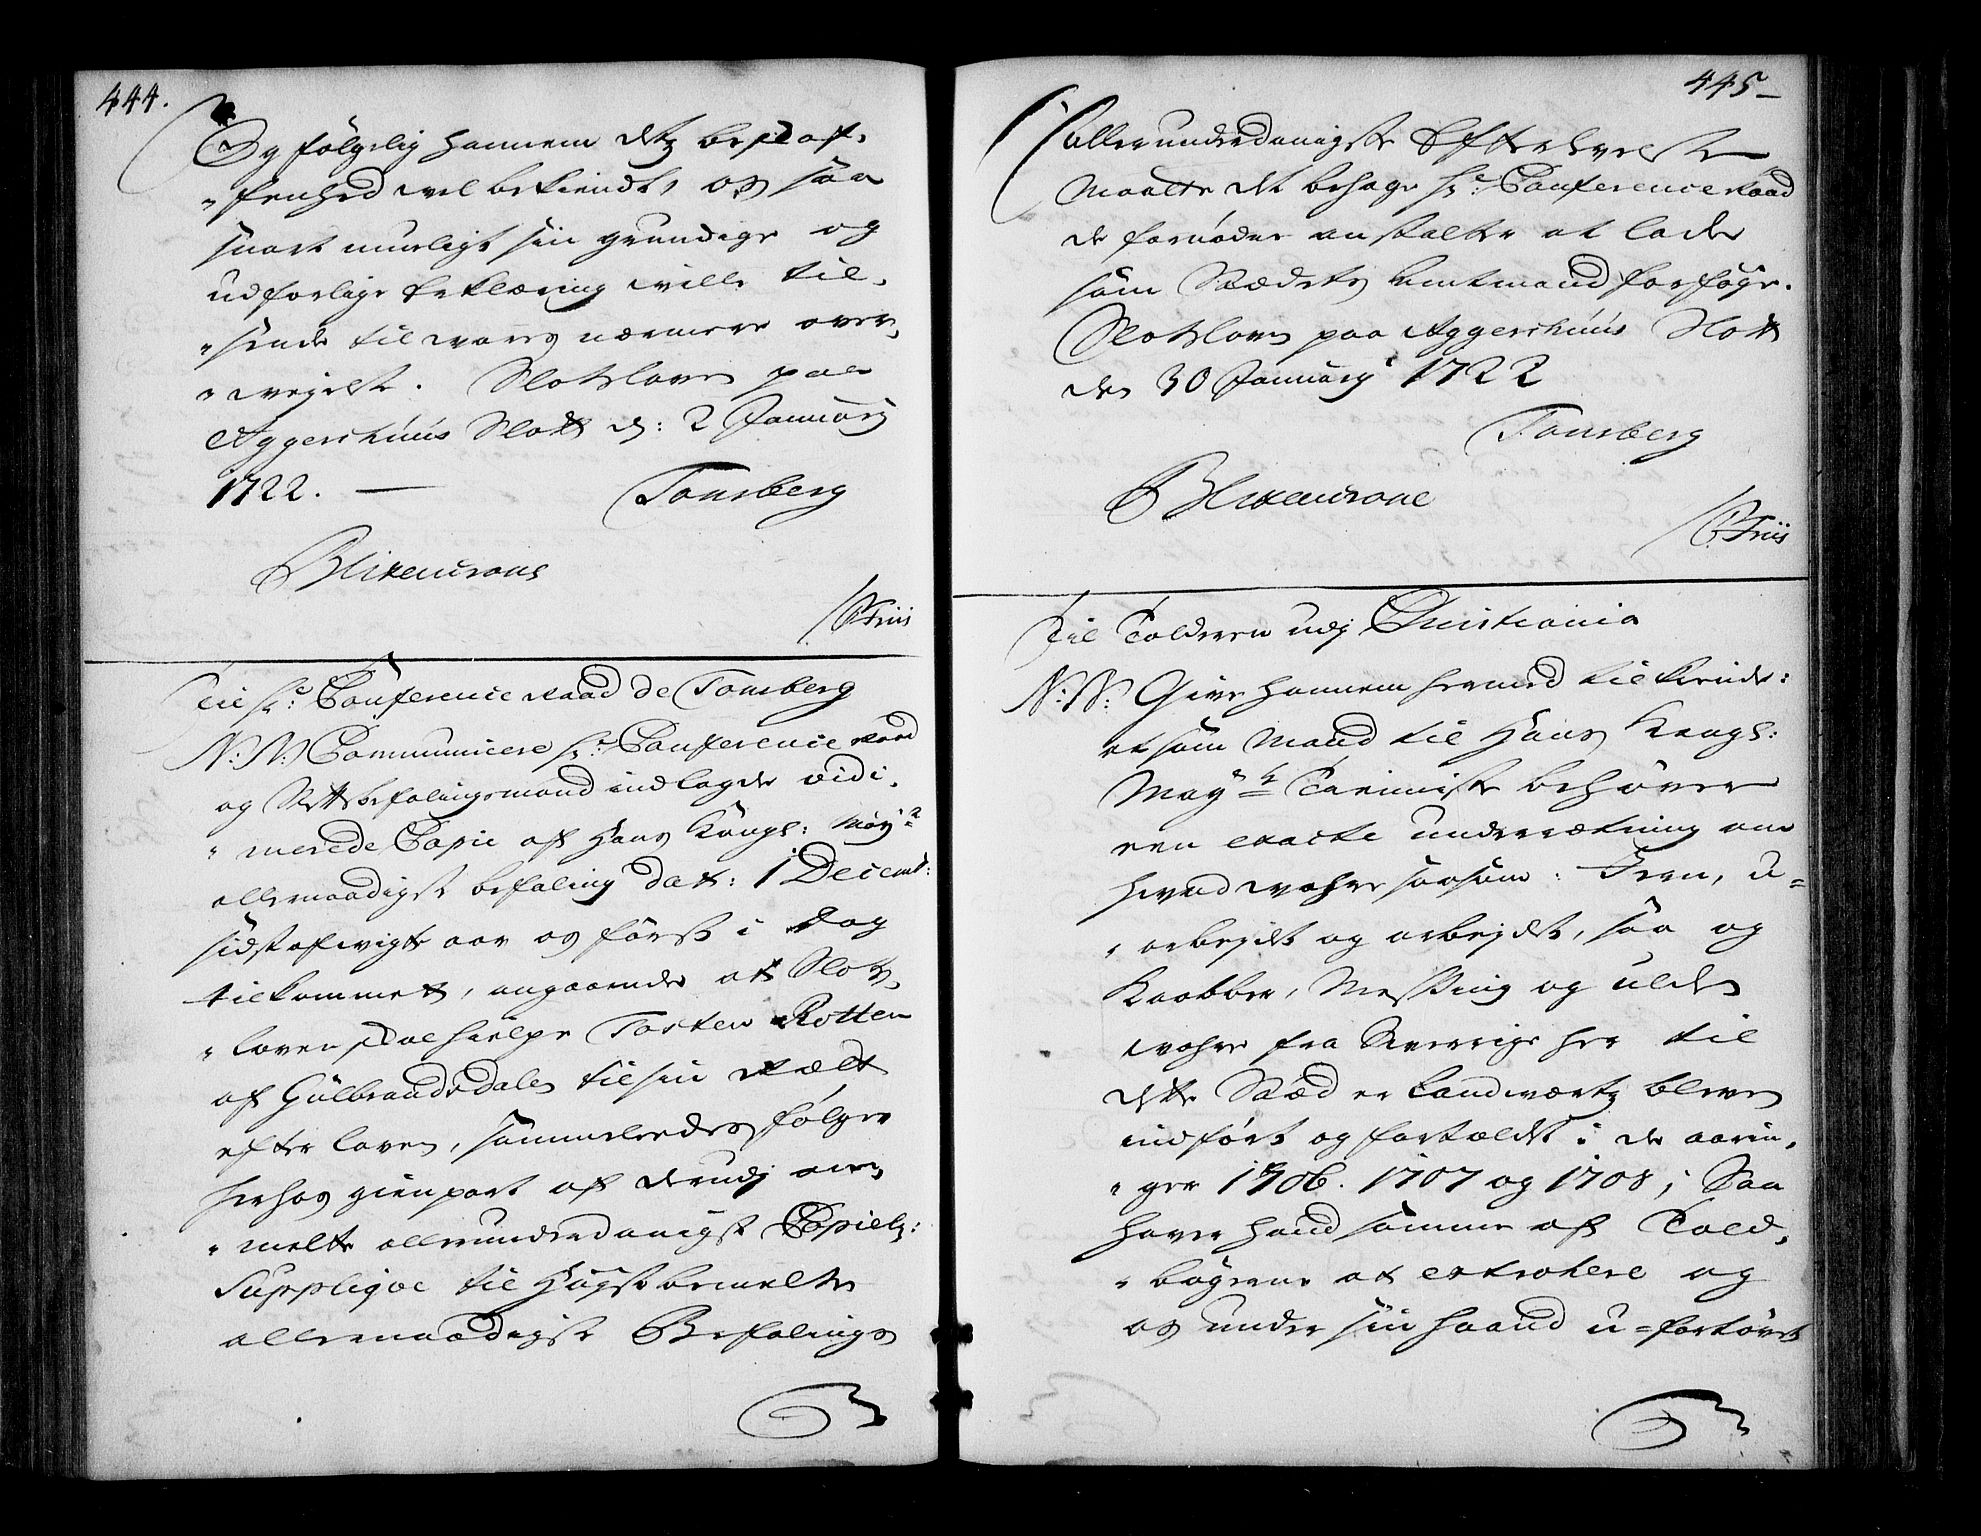 444.
Og følgelig hannem detz beskaf-
"fenhed vel bekiendt, og saa
snart mueligt sin grundige og
udførlige Erklæring wille til-
"sende til wores nærmere over-
"wejelse. Slotsloven paa
Aggershuus Slott d: 2 January
1722. —
Tonsberg
Blixencrone
/P: Friis
Til Hr: Conference Raad de Tonsberg
N: N: Communicere Hr: Conference Raad
og Stftsbefalingsmand indlagde vidi-
"merede Copie af Hans Kongl: May:
allernaadigst befaling dat: 1 Decemb:
sidst afwigte aar og først i Dag
tilkommet, angaaende at Slotz-
"loven skal hielpe Tosten Rotten
af Gulbrandsdalen til sin Rætt
efter loven, sammeledes følger
herhos gienpart af derudj om-
"melte allerunderdanigst
Supplique til Høystbemelte
allernaadigste Befalings
445-
Allerunderdanigste Efterlevelse
Maatte det behage Hr: Conference Raad
de fornødne anstalter at lade
som Stædets Amtmand forføge.
Slotsloven paa Aggershuus Slott
den 30 January 1722
Tonsberg
Blixencrone
/P: Friis
Til Tolderen udj Christiania
N: N: Give hannem hermed tilkiende:
et som Mand til Hans Kongl:
May: Tieniste behøver
een exacte underretning om
hvad wahre saasom: Jern, u-
"arbejdet og arbejdet, saa og
Kaabber, Messing og ulden
wahre fra Sverrige her til
dette Stæd er landwærtz bleven
indført og fortoldet i de aarin-
"ger 1706. 1707 og 1708; Saa
haver hand samme af Told-
"bøgerne at extrahere og
os under sin haand u-fortøvet